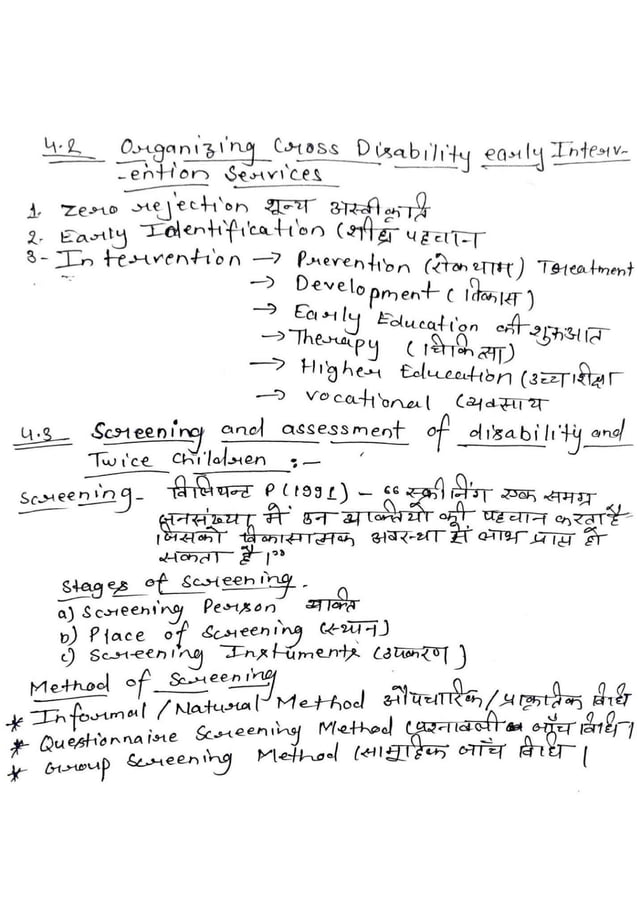 4.2 Organizing Cross Disability early Interv-
-ention Services
1. Zero rejection शून्य अस्वीकृति
2. Early Identification (शीघ्र पहचान
3- Intervention → Prevention (रोकथाम) Treatment
→ Development (विकास)
→ Early Education की शुरुआत
→ Therapy (चिकित्सा)
→ Higher Education (उच्च शिक्षा
→ Vocational (व्यवसाय
4.3 Screening and assessment of disability and
Twice Children :-
Screening - P (1991) - "स्क्रीनिंग एक समग्र
जनसंख्या में उन व्यक्तियो की पहचान करता है
जिसको विकासात्मक अवस्था में लाभ प्राप्त हो
सकता है।"
Stages of Screening.
a) Screening Person व्यक्ति
b) Place of Screening (स्थान)
c) Screening Instuments (उपकरण)
Method of Screening
* Informal / Natural Method औपचारिक/प्राकृतिक विधि
* Questionnaire Screening Method (प्रश्नावली जाँच विधि।
* Group Screening Method (सामूहिक जाँच विधि।